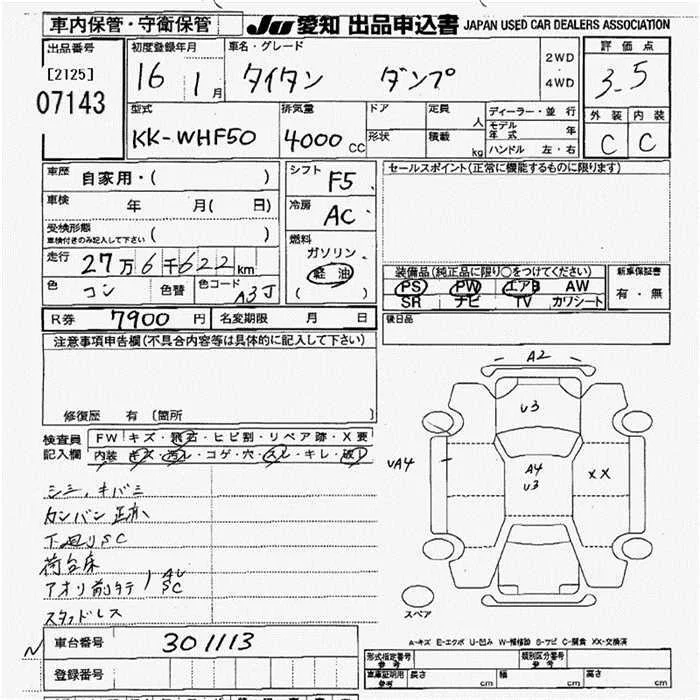 車内保管・守衛保管
JU 愛知 出品申込書 JAPAN USED CAR DEALERS ASSOCIATION
出品番号
[2125]
07143
初度登録年月
16 1月
車名・グレード
タイタン ダンプ
2WD
・
4WD
評価点
3.5
外装 内装
C C
型式
KK-WHF50
排気量
4000 CC
ドア
形状
定員
人
積載
kg
ディーラー・並行
モデル年式 年
ハンドル 左・右
車歴 自家用・( )
車検 年 月( 日)
受検形態
車検付きのみ記入して下さい ( )
走行 27万6千622km
色 コン 色替 色コード A3J
シフト F5
冷房 AC
燃料
ガソリン
軽油
( )
セールスポイント(正常に機能するものに限ります)
装備品(純正品に限り○をつけてください)
PS PW エアB AW
SR ナビ TV カワシート
新車保証書
有・無
R券 7900円 名変期限 月 日
後日品
注意事項申告欄(不具合内容等は具体的に記入して下さい)
修復歴 有 [箇所 ]
検査員記入欄
FW キズ・飛石・ヒビ割・リペア跡・X要
内装 キズ・汚れ・コゲ・穴・スレ・キレ・破れ
シミ、キバミ
下廻りSC
荷台床
アオリ前タテ AU SC
スタッドレス
A2
U3
UA4
A4
U3
XX
スペア
A-キズ E-エクボ U-凹み W-補修跡 S-サビ C-腐食 XX-交換済
車台番号 301113
登録番号
形式指定番号 参考
類別区分番号 参考
車庫証明用 参考 長さ cm 幅 cm 高さ cm